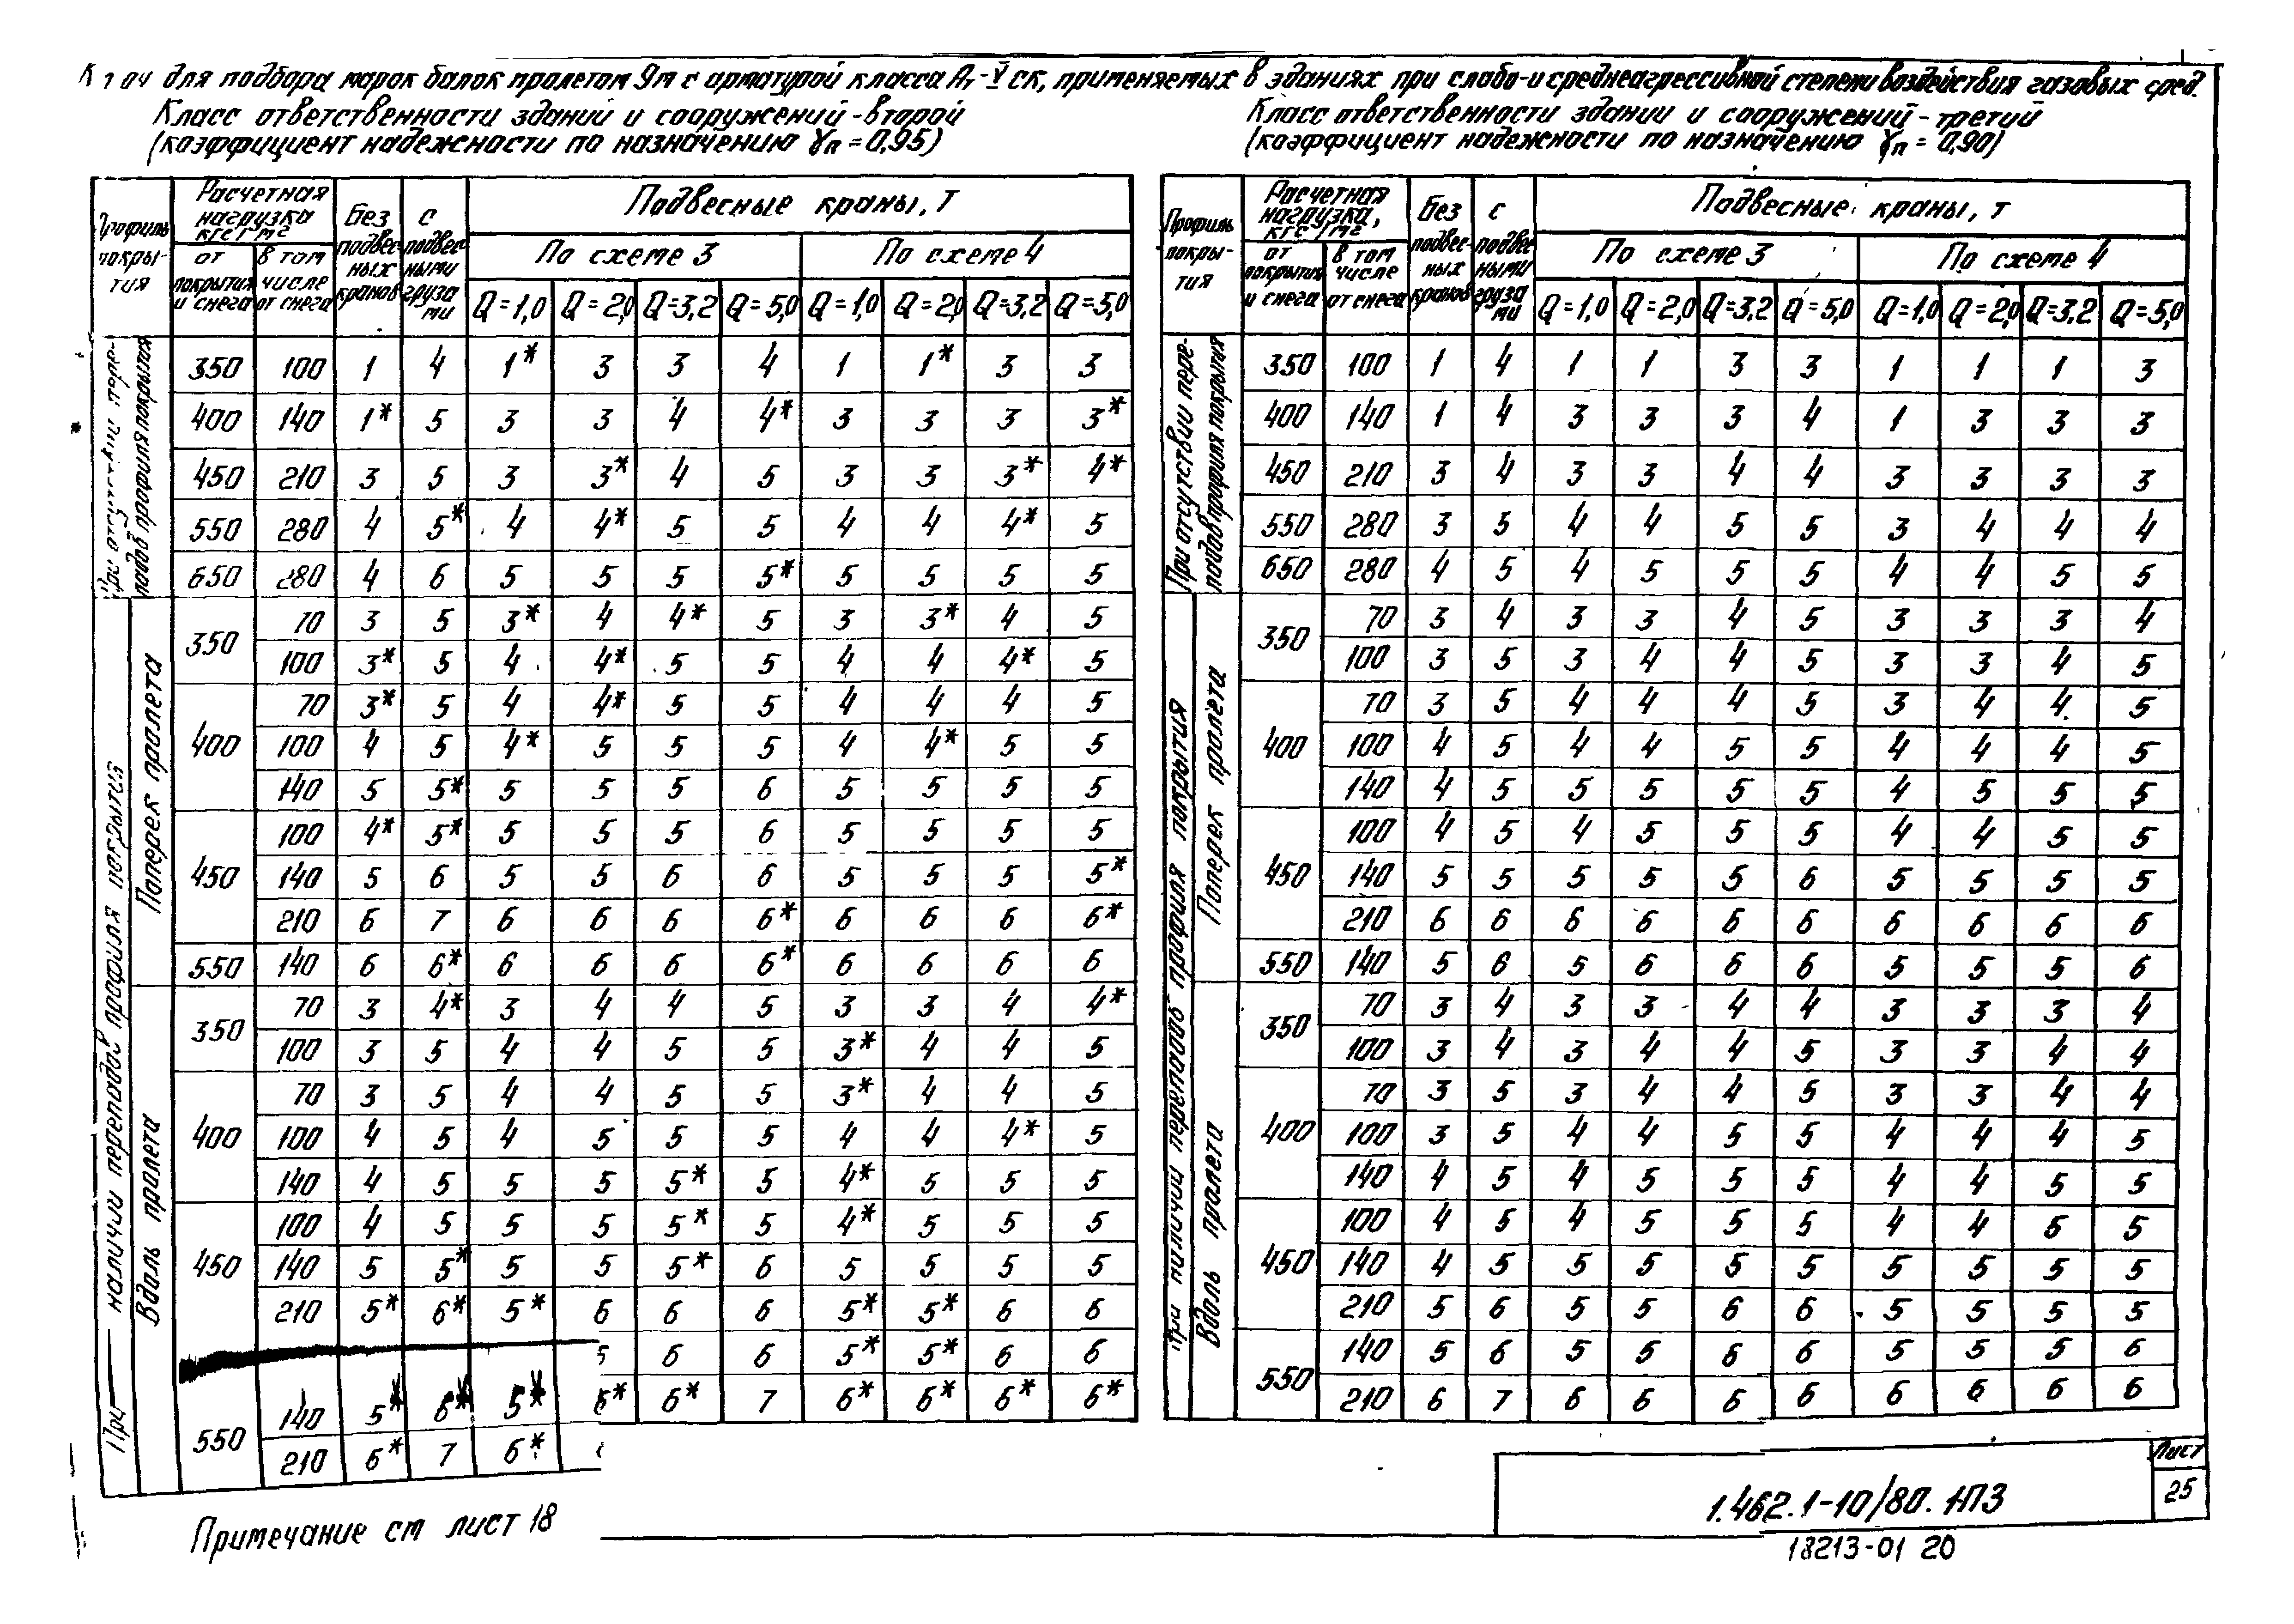 К л ч для подбора марок балок пролетом 9м с арматурой класса Ат-V ск, применяемых в зданиях при слабо-и среднеагрессивной степени воздействия газовых сред.
Класс ответственности зданий и сооружений-второй
(коэффициент надежности по назначению γп = 0,95)
Профиль покры-тия | Расчетная нагрузка кгс/м2 | Без подвес-ных кранов | С подвес-ными груза ми | Подвесные краны, т
от покрытия и снега | в том числе от снега | По схеме 3 | По схеме 4
Q=1,0 Q=2,0 Q=3,2 Q=5,0 Q=1,0 Q=2,0 Q=3,2 Q=5,0
При отсутствии пере-падов профиля покрытия
350 100 1 4 1* 3 3 4 1 1* 3 3
400 140 1* 5 3 3 4 4* 3 3 3 3*
450 210 3 5 3 3* 4 5 3 3 3* 4*
550 280 4 5* 4 4* 5 5 4 4 4* 5
650 280 4 6 5 5 5 5* 5 5 5 5
При наличии перепадов профиля покрытия
Поперек пролета
350 70 3 5 3* 4 4* 5 3 3* 4 5
100 3* 5 4 4* 5 5 4 4 4* 5
400 70 3* 5 4 4* 5 5 4 4 4 5
100 4 5 4* 5 5 5 4 4* 5 5
140 5 5* 5 5 5 6 5 5 5 5
450 100 4* 5* 5 5 5 6 5 5 5 5
140 5 6 5 5 6 6 5 5 5 5*
210 6 7 6 6 6 6* 6 6 6 6*
550 140 6 6* 6 6 6 6* 6 6 6 6
Вдоль пролета
350 70 3 4* 3 4 4 5 3 3 4 4*
100 3 5 4 4 5 5 3* 4 4 5
400 70 3 5 4 4 5 5 3* 4 4 5
100 4 5 4 5 5 5 4 4 4* 5
140 4 5 5 5 5* 5 4* 5 5 5
450 100 4 5 5 5 5* 5 4* 5 5 5
140 5 5* 5 5 5* 6 5 5 5 5
210 5* 6* 5* 6 6 6 5* 5* 6 6
6 6 5* 5* 6 6
550 140 5* 6* 5*
6* 7 6* 6* 6* 6*
210 6* 7 6*
Примечание см лист 18
Класс ответственности зданий и сооружений-третий
(коэффициент надежности по назначению γп = 0,90)
Профиль покры-тия | Расчетная нагрузка, кгс/м2 | Без подвес-ных кранов | С подвес-ными груза ми | Подвесные краны, т
от покрытия и снега | в том числе от снега | По схеме 3 | По схеме 4
Q=1,0 Q=2,0 Q=3,2 Q=5,0 Q=1,0 Q=2,0 Q=3,2 Q=5,0
При отсутствии пере-падов профиля покрытия
350 100 1 4 1 1 3 3 1 1 1 3
400 140 1 4 3 3 3 4 1 3 3 3
450 210 3 4 3 3 4 4 3 3 3 3
550 280 3 5 4 4 5 5 3 4 4 4
650 280 4 5 4 5 5 5 4 4 5 5
При наличии перепадов профиля покрытия
Поперек пролета
350 70 3 4 3 3 4 5 3 3 3 4
100 3 5 3 4 4 5 3 3 4 5
400 70 3 5 4 4 4 5 3 4 4 5
100 4 5 4 4 5 5 4 4 4 5
140 4 5 5 5 5 5 4 5 5 5
450 100 4 5 4 5 5 5 4 4 5 5
140 5 5 5 5 5 6 5 5 5 5
210 6 6 6 6 6 6 6 6 6 6
550 140 5 6 5 6 6 6 5 5 5 6
Вдоль пролета
350 70 3 4 3 3 4 4 3 3 3 4
100 3 4 3 4 4 5 3 3 4 4
400 70 3 5 3 4 4 5 3 3 4 4
100 3 5 4 4 5 5 4 4 4 5
140 4 5 4 5 5 5 4 4 5 5
450 100 4 5 4 5 5 5 4 4 5 5
140 4 5 5 5 5 5 5 5 5 5
210 5 6 5 5 6 6 5 5 5 5
550 140 5 6 5 5 6 6 5 5 5 6
210 6 7 6 6 6 6 6 6 6 6
1.462.1-10/80.1ПЗ
Лист
25
18213-01 20